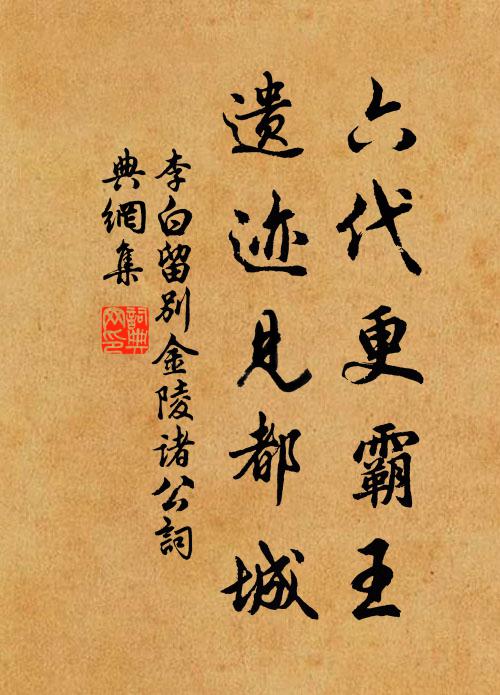 六代更霸王
遗迹见都城
李白留别金陵诸公詞
典網集
詞典
网印